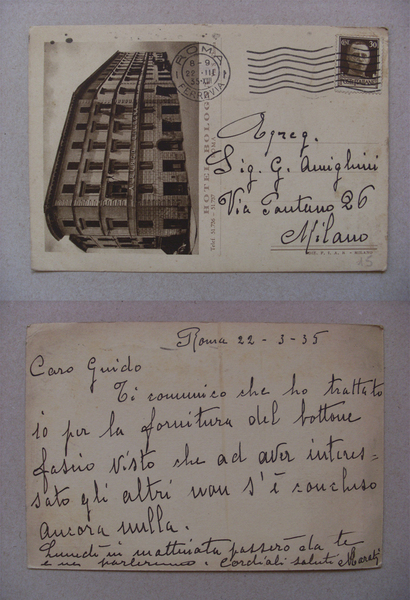 ROMA
FERROVIA
8-9
22 III
35 XIII
CENT 30
HOTEL BOLOG
Egreg.
Sig. G. Amighini
Via Fontano 26
Milano
25
Roma 22 - 3 - 35
Caro Guido
Ti comunico che ho trattato
io per la fornitura del bottone
fascio visto che ad aver interes-
sato gli altri non s'è concluso
ancora nulla.
Lunedì in mattinata passerò da te
e ne parleremo. Cordiali saluti